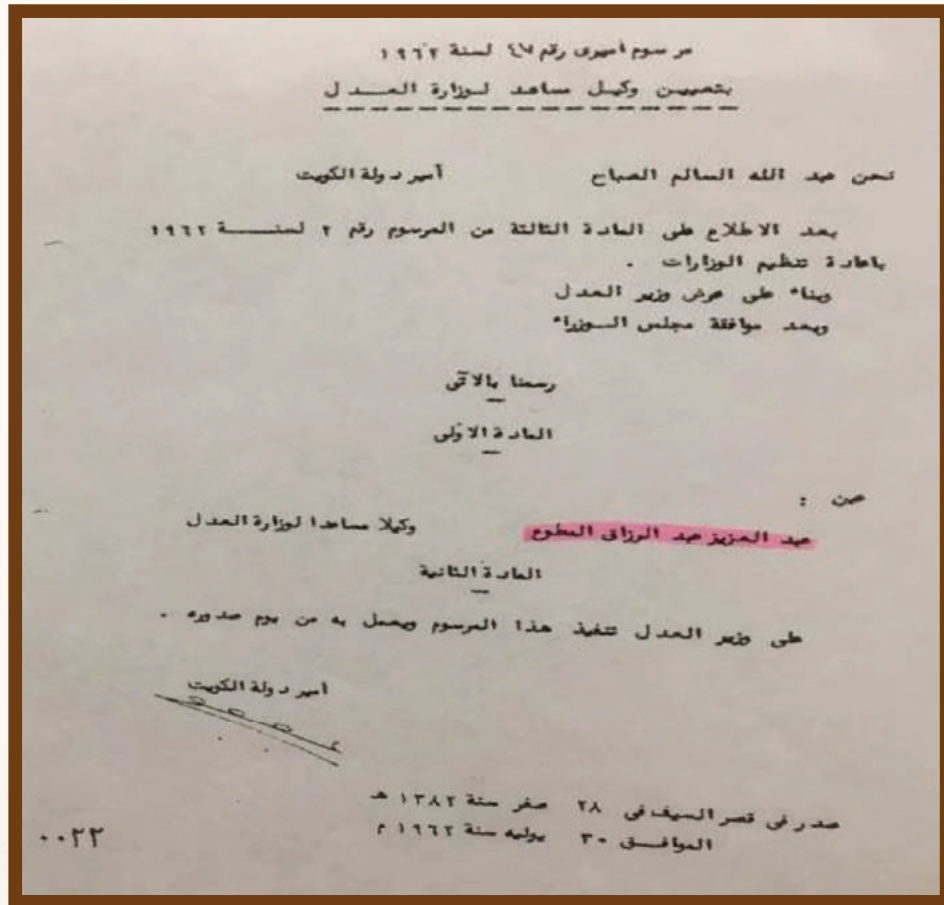 مرسوم اميرى رقم ٤٧ لسنة ١٩٦٢
بتعيين وكيل مساعد لوزارة العدل
نحن عبد الله السالم الصباح أمير دولة الكويت
بعد الاطلاع على المادة الثالثة من المرسوم رقم ٢ لسنة ١٩٦٢
باعادة تنظيم الوزارات .
وبناء على عرض وزير العدل
وبعد موافقة مجلس الوزراء
رسمنا بالآتى
المادة الأولى
عين :
عبد العزيز عبد الرزاق المطوع وكيلا مساعدا لوزارة العدل
المادة الثانية
على وزير العدل تنفيذ هذا المرسوم ويعمل به من يوم صدوره .
أمير دولة الكويت
صدر فى قصر السيف فى ٢٨ صفر سنة ١٣٨٢ هـ
الموافق ٣٠ يوليه سنة ١٩٦٢ م
٠٠٢٢